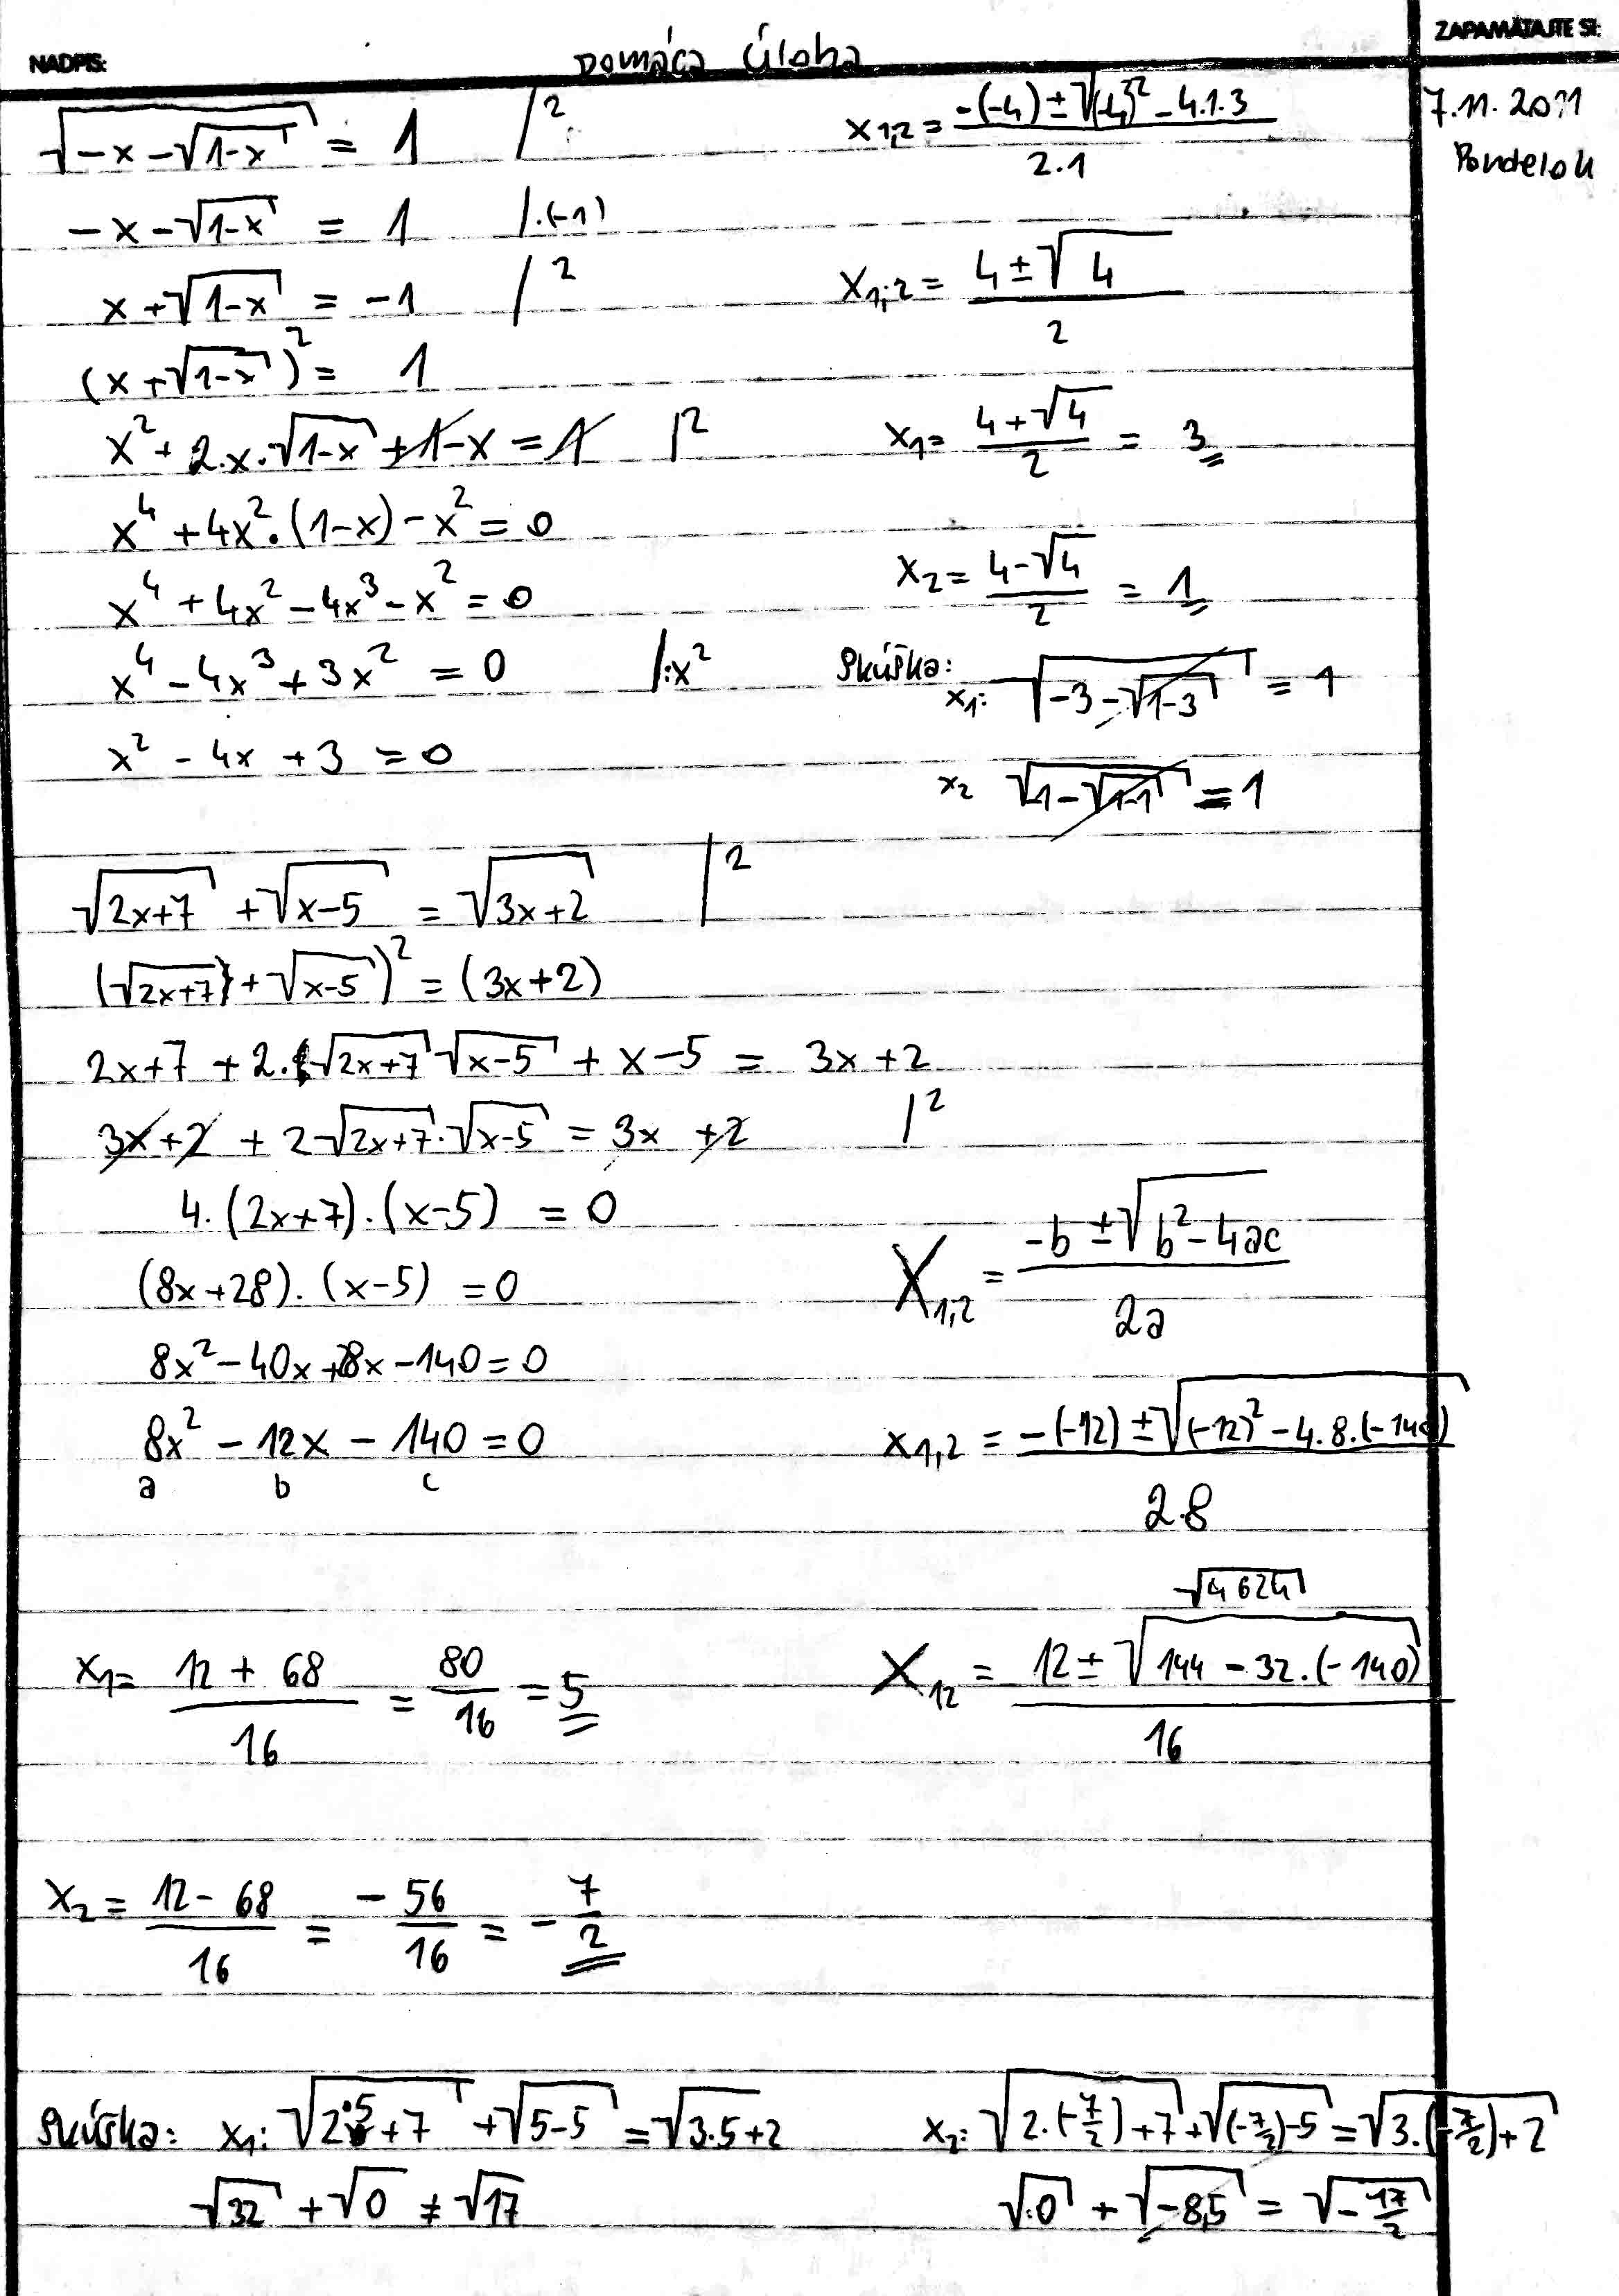 NADPIS: Domáca Úloha ZAPAMÄTAJTE SI:
7.11.2011
Pondelok
√(-x-√(1-x)) = 1 /²
-x-√(1-x) = 1 /.(-1)
x+√(1-x) = -1 /²
(x+√(1-x))² = 1
x²+2.x.√(1-x)+1-x=1 /²
x⁴+4x².(1-x)-x²=0
x⁴+4x²-4x³-x²=0
x⁴-4x³+3x²=0 /:x²
x²-4x+3=0
x1,2 = (-(-4)±√((-4)²-4.1.3))/2.1
x1,2 = (4±√4)/2
x1 = (4+√4)/2 = 3
x2 = (4-√4)/2 = 1
Skúška:
x1: √(-3-√(1-3)) = 1
x2 √(-1-√(1-1)) = 1
√(2x+7) + √(x-5) = √(3x+2) /²
(√(2x+7)+√(x-5))² = (3x+2)
2x+7+2.√(2x+7)√(x-5)+x-5 = 3x+2
3x+2+2√(2x+7).√(x-5) = 3x+2 /²
4.(2x+7).(x-5) = 0
(8x+28).(x-5) = 0
8x²-40x+28x-140=0
8x²-12x-140=0
a b c
x1,2 = (-b±√(b²-4ac))/2a
x1,2 = (-(-12)±√((-12)²-4.8.(-140)))/2.8
√4624
x12 = (12±√(144-32.(-140)))/16
x1= (12+68)/16 = 80/16 = 5
x2 = (12-68)/16 = -56/16 = -7/2
Skúška: x1: √(2.5+7)+√(5-5)=√(3.5+2)
√32 + √0 ≠ √17
x2: √(2.(-7/2)+7)+√((-7/2)-5)=√(3.(-7/2)+2)
√0 + √(-8,5) = √(-17/2)